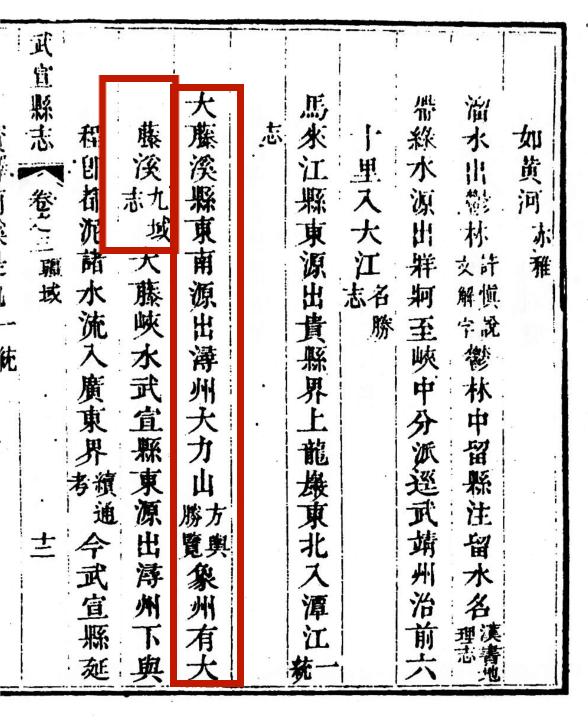 如黃河尒雅
溜水出鬱林許慎說文解字鬱林中留縣注留水名漢書地理志
帶綠水源出牂牁至峽中分派逕武靖州治前六
十里入大江名勝志
馬來江縣東源出貴縣界上龍巖東北入潭江一統
志
大藤溪縣東南源出潯州大力山方輿勝覽象州有大
藤溪九域志大藤峽水武宣縣東源出潯州下與
程卽都泥諸水流入廣東界續通考今武宣縣延
武宣縣志 卷之三 疆域 十二